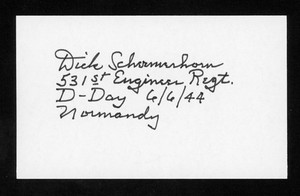 Dick Schermerhorn
531st Engineer Regt.
D-Day 6/6/44
Normandy